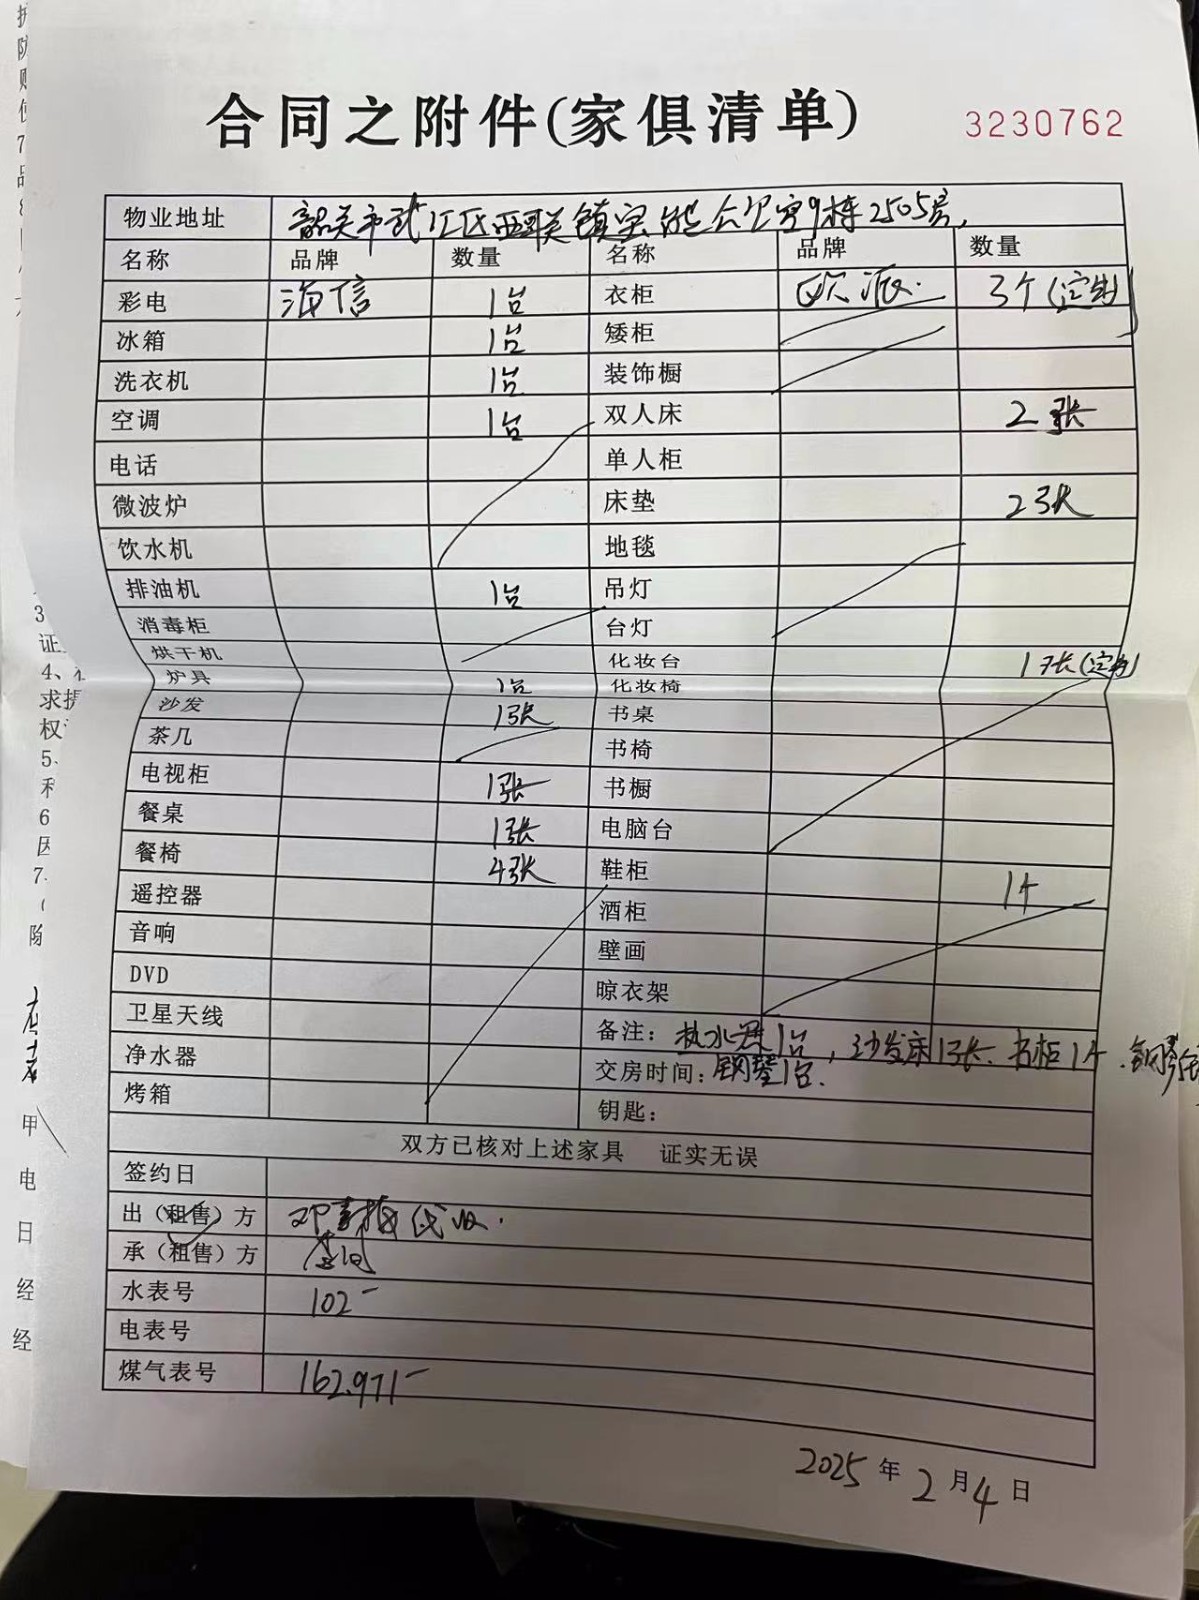 合同之附件(家俱清单) 3230762
物业地址 韶关市武江区西联镇实能公馆9栋2505房
名称 品牌 数量 名称 品牌 数量
彩电 海信 1台 衣柜 欧派 3个(定制)
冰箱 1台 矮柜
洗衣机 1台 装饰橱
空调 1台 双人床 2张
电话 单人柜
微波炉 床垫 2张
饮水机 地毯
排油机 1台 吊灯
消毒柜 台灯
烘干机 化妆台 1张(定制)
炉具 1台 化妆椅
沙发 1张 书桌
茶几 书椅
电视柜 1张 书橱
餐桌 1张 电脑台
餐椅 4张 鞋柜 1个
遥控器 酒柜
音响 壁画
DVD 晾衣架
卫星天线 备注: 热水器1台,沙发床1张、书柜1个、钢琴
净水器 交房时间: 钢琴1台.
烤箱 钥匙:
双方已核对上述家具 证实无误
签约日
出(租售)方 代收.
承(租售)方
水表号 102-
电表号
煤气表号 162.971-
2025年2月4日